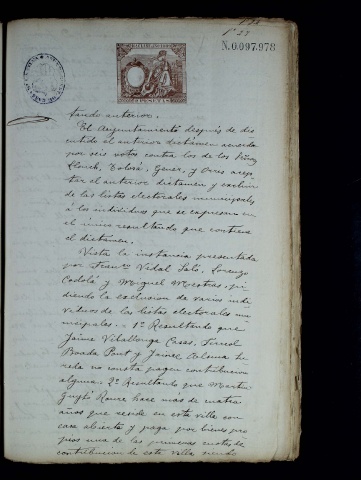 N.0.097.978
tando anterior.
El Ayuntamiento después de dis
cutido el anterior dictámen acuerda
por seis votos contra los de los
Llonch, Tolosá, Gener, y Orres acep
tar el anterior dictamen y excluir
de las listas electorales municipales
á los individuos que se expresan en
el único resultando que contiene
el dictámen.
Vista la instancia presentada
por Franco Vidal Saló, Lorenzo
Codolá y Miguel Mestras, pi
diendo la exclusion de varios indi
viduos de las listas electorales mu
nicipales. - 1º Resultando que
Jaime Vilallonga Casas,
Boada Pont y Jaime
no consta paguen contribucion
alguna. 2º Resultando que Martin
Roure hace más de cuatro
años que reside en esta villa con
casa abierta y paga por bienes pro
pios una de las primeras cuotas de
contribucion de esta villa siendo